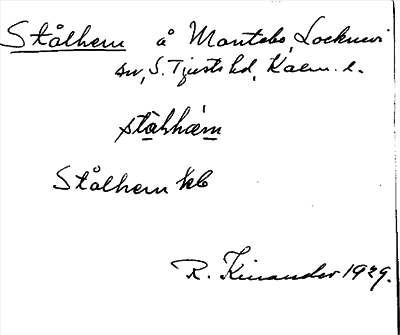 Stålhem å Mantebo, Locknevi
sn, S. Tjusts hd, Kalm. l.
stålhäm
Stålhem kb
R. Kinander 1929.